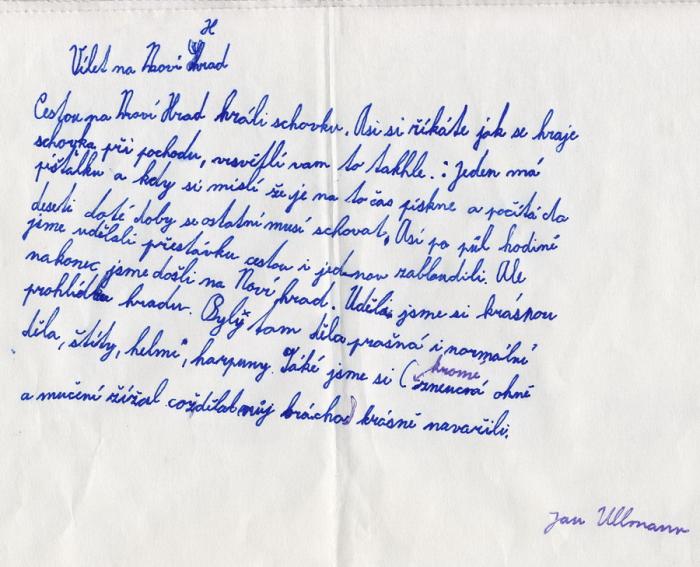 H
Vílet na Noví Hrad
Cestou na Noví Hrad hráli schovku. Asi si říkáte jak se hraje
schovka při pochodu, visvětlí vam to takhle.: Jeden má
píšťalku a kdy si mislí že je na to čas pískne a počítá do
deseti do té doby se ostatní musí schovat. Así po půl hodině
jsme udělali přestávku cestou i jednou zabloudili. Ale
nakonec jsme došli na Noví hrad. Udělali jsme si krásnou
prohlídku hradu. Byly tam děla prašná i normální
děla, štíty, helmi, harpuny. Také jsme si (krome
ohně
a mučení žížal což dělal můj brácha) krásně navařili.
Jan Ullmann